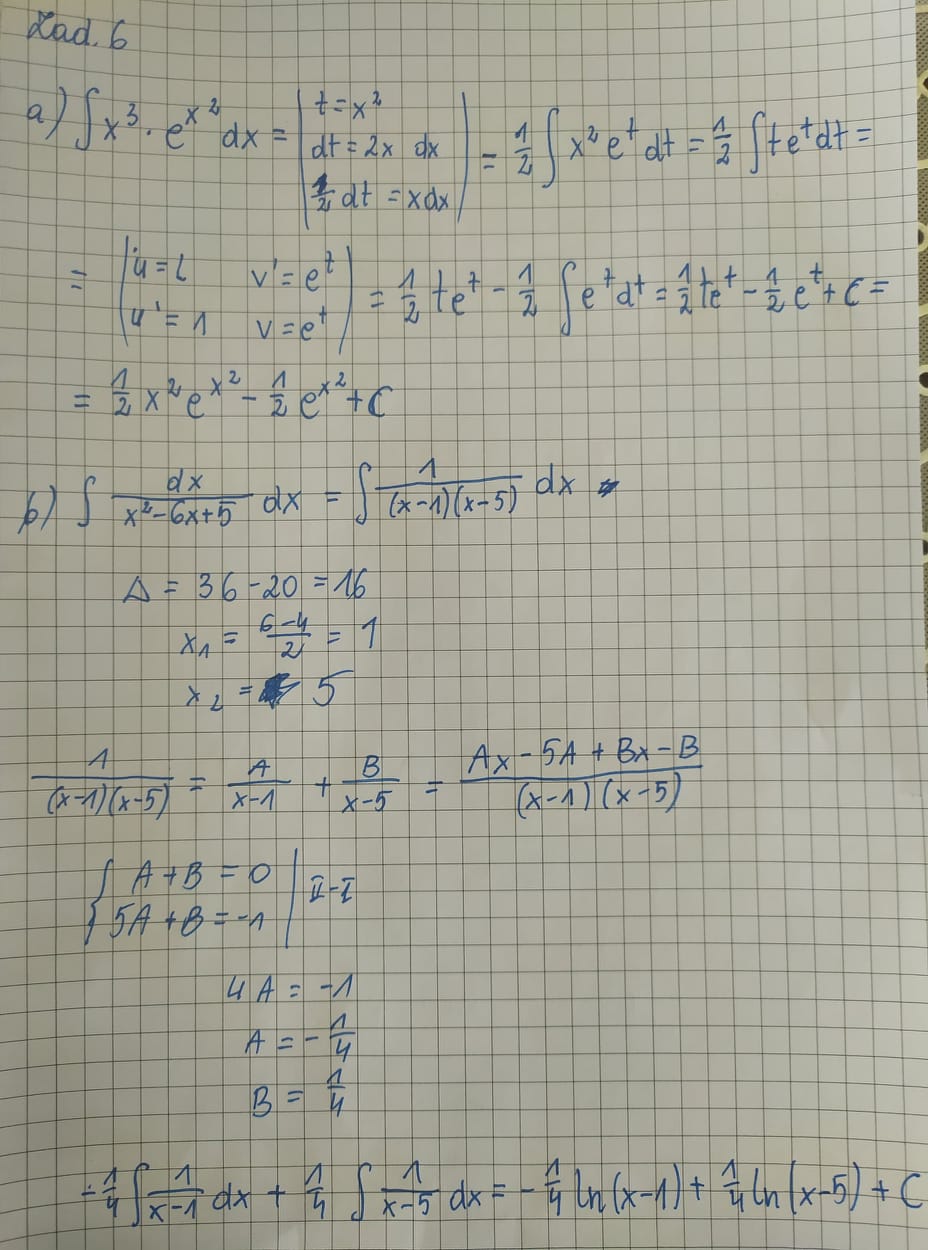 Zad. 6
a) ∫ x³ · e^{x²} dx = | t = x² ; dt = 2x dx ; 1/2 dt = x dx | = 1/2 ∫ x² e^t dt = 1/2 ∫ t e^t dt =
= | u = t v' = e^t ; u' = 1 v = e^t | = 1/2 t e^t - 1/2 ∫ e^t dt = 1/2 t e^t - 1/2 e^t + C =
= 1/2 x² e^{x²} - 1/2 e^{x²} + C
b) ∫ dx/(x² - 6x + 5) dx = ∫ 1/((x-1)(x-5)) dx
Δ = 36 - 20 = 16
x₁ = (6-4)/2 = 1
x₂ = 5
1/((x-1)(x-5)) = A/(x-1) + B/(x-5) = (Ax - 5A + Bx - B)/((x-1)(x-5))
{ A + B = 0 | II - I
5A + B = -1 |
4A = -1
A = -1/4
B = 1/4
-1/4 ∫ 1/(x-1) dx + 1/4 ∫ 1/(x-5) dx = -1/4 ln(x-1) + 1/4 ln(x-5) + C